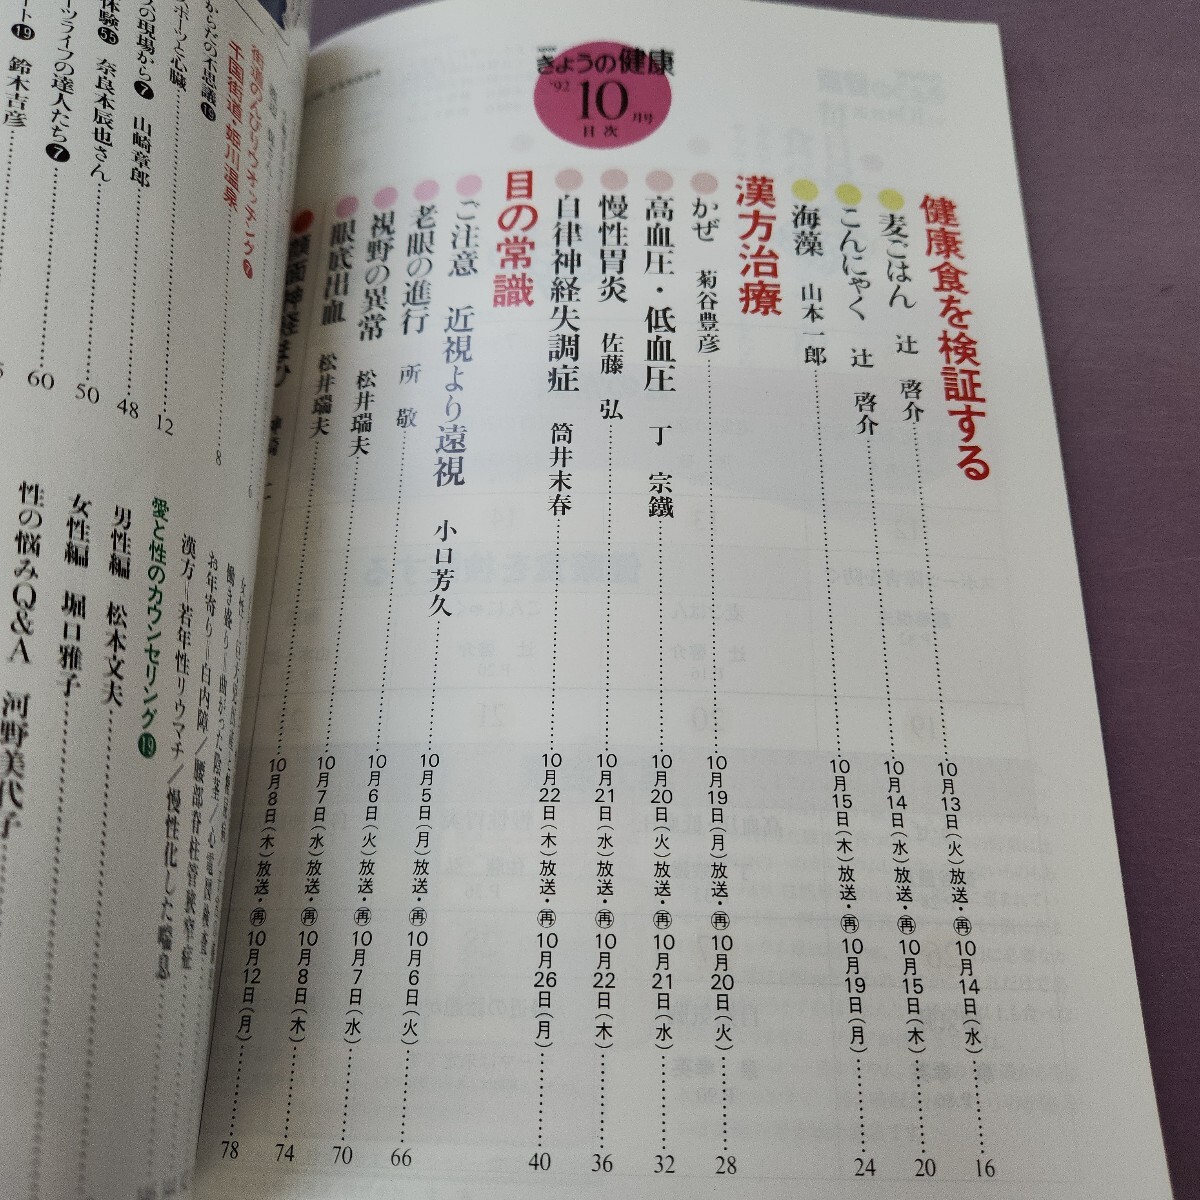 きょうの健康
'92
10
月号
目次
健康食を検証する
麦ごはん 辻 啓介 10月13日(火)放送・再10月14日(水) 16
こんにゃく 辻 啓介 10月14日(水)放送・再10月15日(木) 20
海藻 山本一郎 10月15日(木)放送・再10月19日(月) 24
漢方治療
かぜ 菊谷豊彦 10月19日(月)放送・再10月20日(火) 28
高血圧・低血圧 丁 宗鐵 10月20日(火)放送・再10月21日(水) 32
慢性胃炎 佐藤 弘 10月21日(水)放送・再10月22日(木) 36
自律神経失調症 筒井末春 10月22日(木)放送・再10月26日(月) 40
目の常識
ご注意 近視より遠視 小口芳久 10月5日(月)放送・再10月6日(火) 66
老眼の進行 所 敬 10月6日(火)放送・再10月7日(水) 70
視野の異常 松井瑞夫 10月7日(水)放送・再10月8日(木) 74
眼底出血 松井瑞夫 10月8日(木)放送・再10月12日(月) 78
街道のんびりウォッチング7
千国街道・姫川温泉 8
からだの不思議19
スポーツと心臓 12
の現場から7 山崎章郎 48
体験55 奈良本辰也さん 50
ーツライフの達人たち7 60
ート19 鈴木吉彦
働き盛り=曲がった陰茎/心電図検査
お年寄り=白内障/腰部脊柱管狭窄症
漢方=若年性リウマチ/慢性化した喘息
愛と性のカウンセリング19
男性編 松本文夫
女性編 堀口雅子
性の悩みQ&A 河野美代子